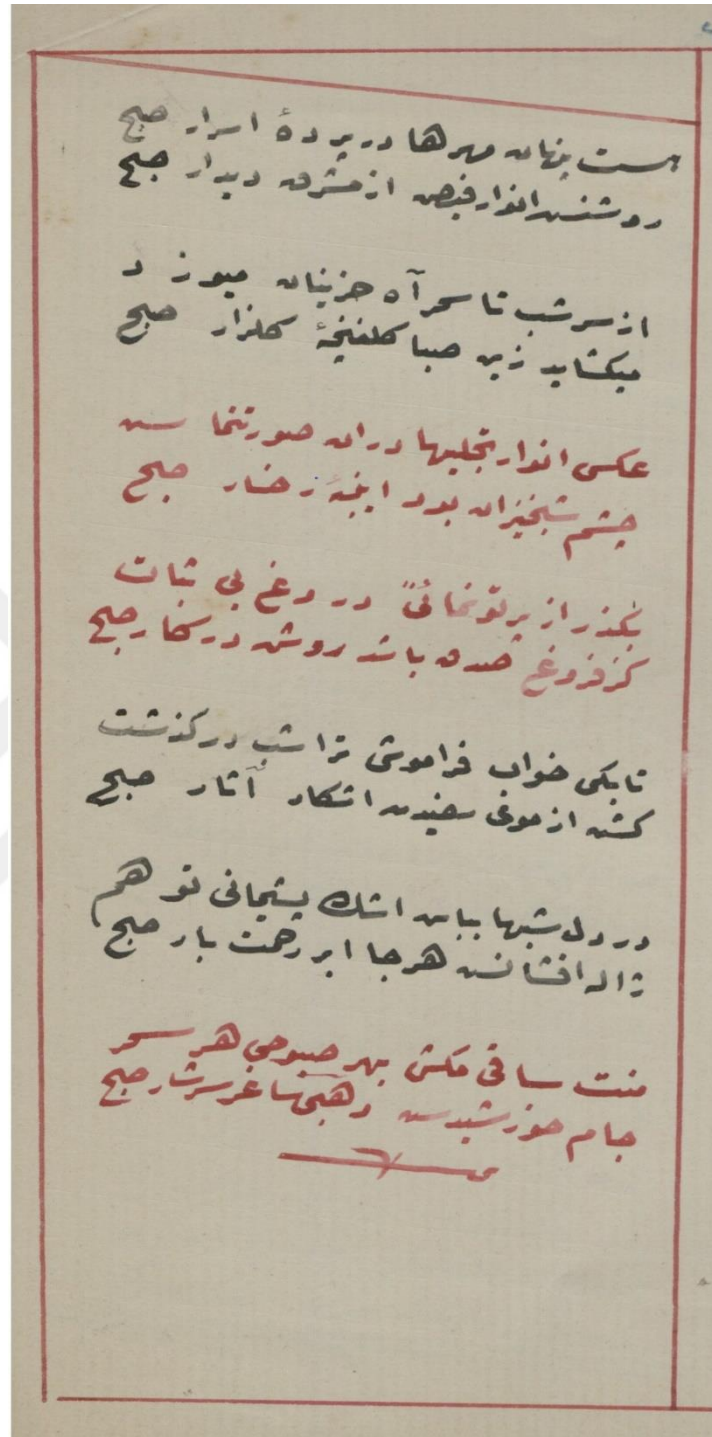 هست پنهان مهرها در پردهٔ اسرار صبح
روشنست انوار فیض از مشرق دیدار صبح
از سر شب تا سحر آه حزینان میوزد
میکشاید زین صبا کلغنچهٔ کلزار صبح
عکس انوار تجلیها دران صورتنماست
چشم شبخیزان بود اینهٔ رخسار صبح
بگذر از پرتونمائی دروغ بی ثبات
کز فروغ صدق باشد روشن در کار صبح
تا بکی خواب فراموشی ترا شب در کذشت
کشت از موی سفیدت اشکار آثار صبح
در دل شبها بپاش اشک پشیمانی تو هم
ژاله افشانست هرجا ابر رحمت بار صبح
منت ساقی مکش بهر صبوحی هر سحر
جام خورشیدست وهبی ساغر سرشار صبح